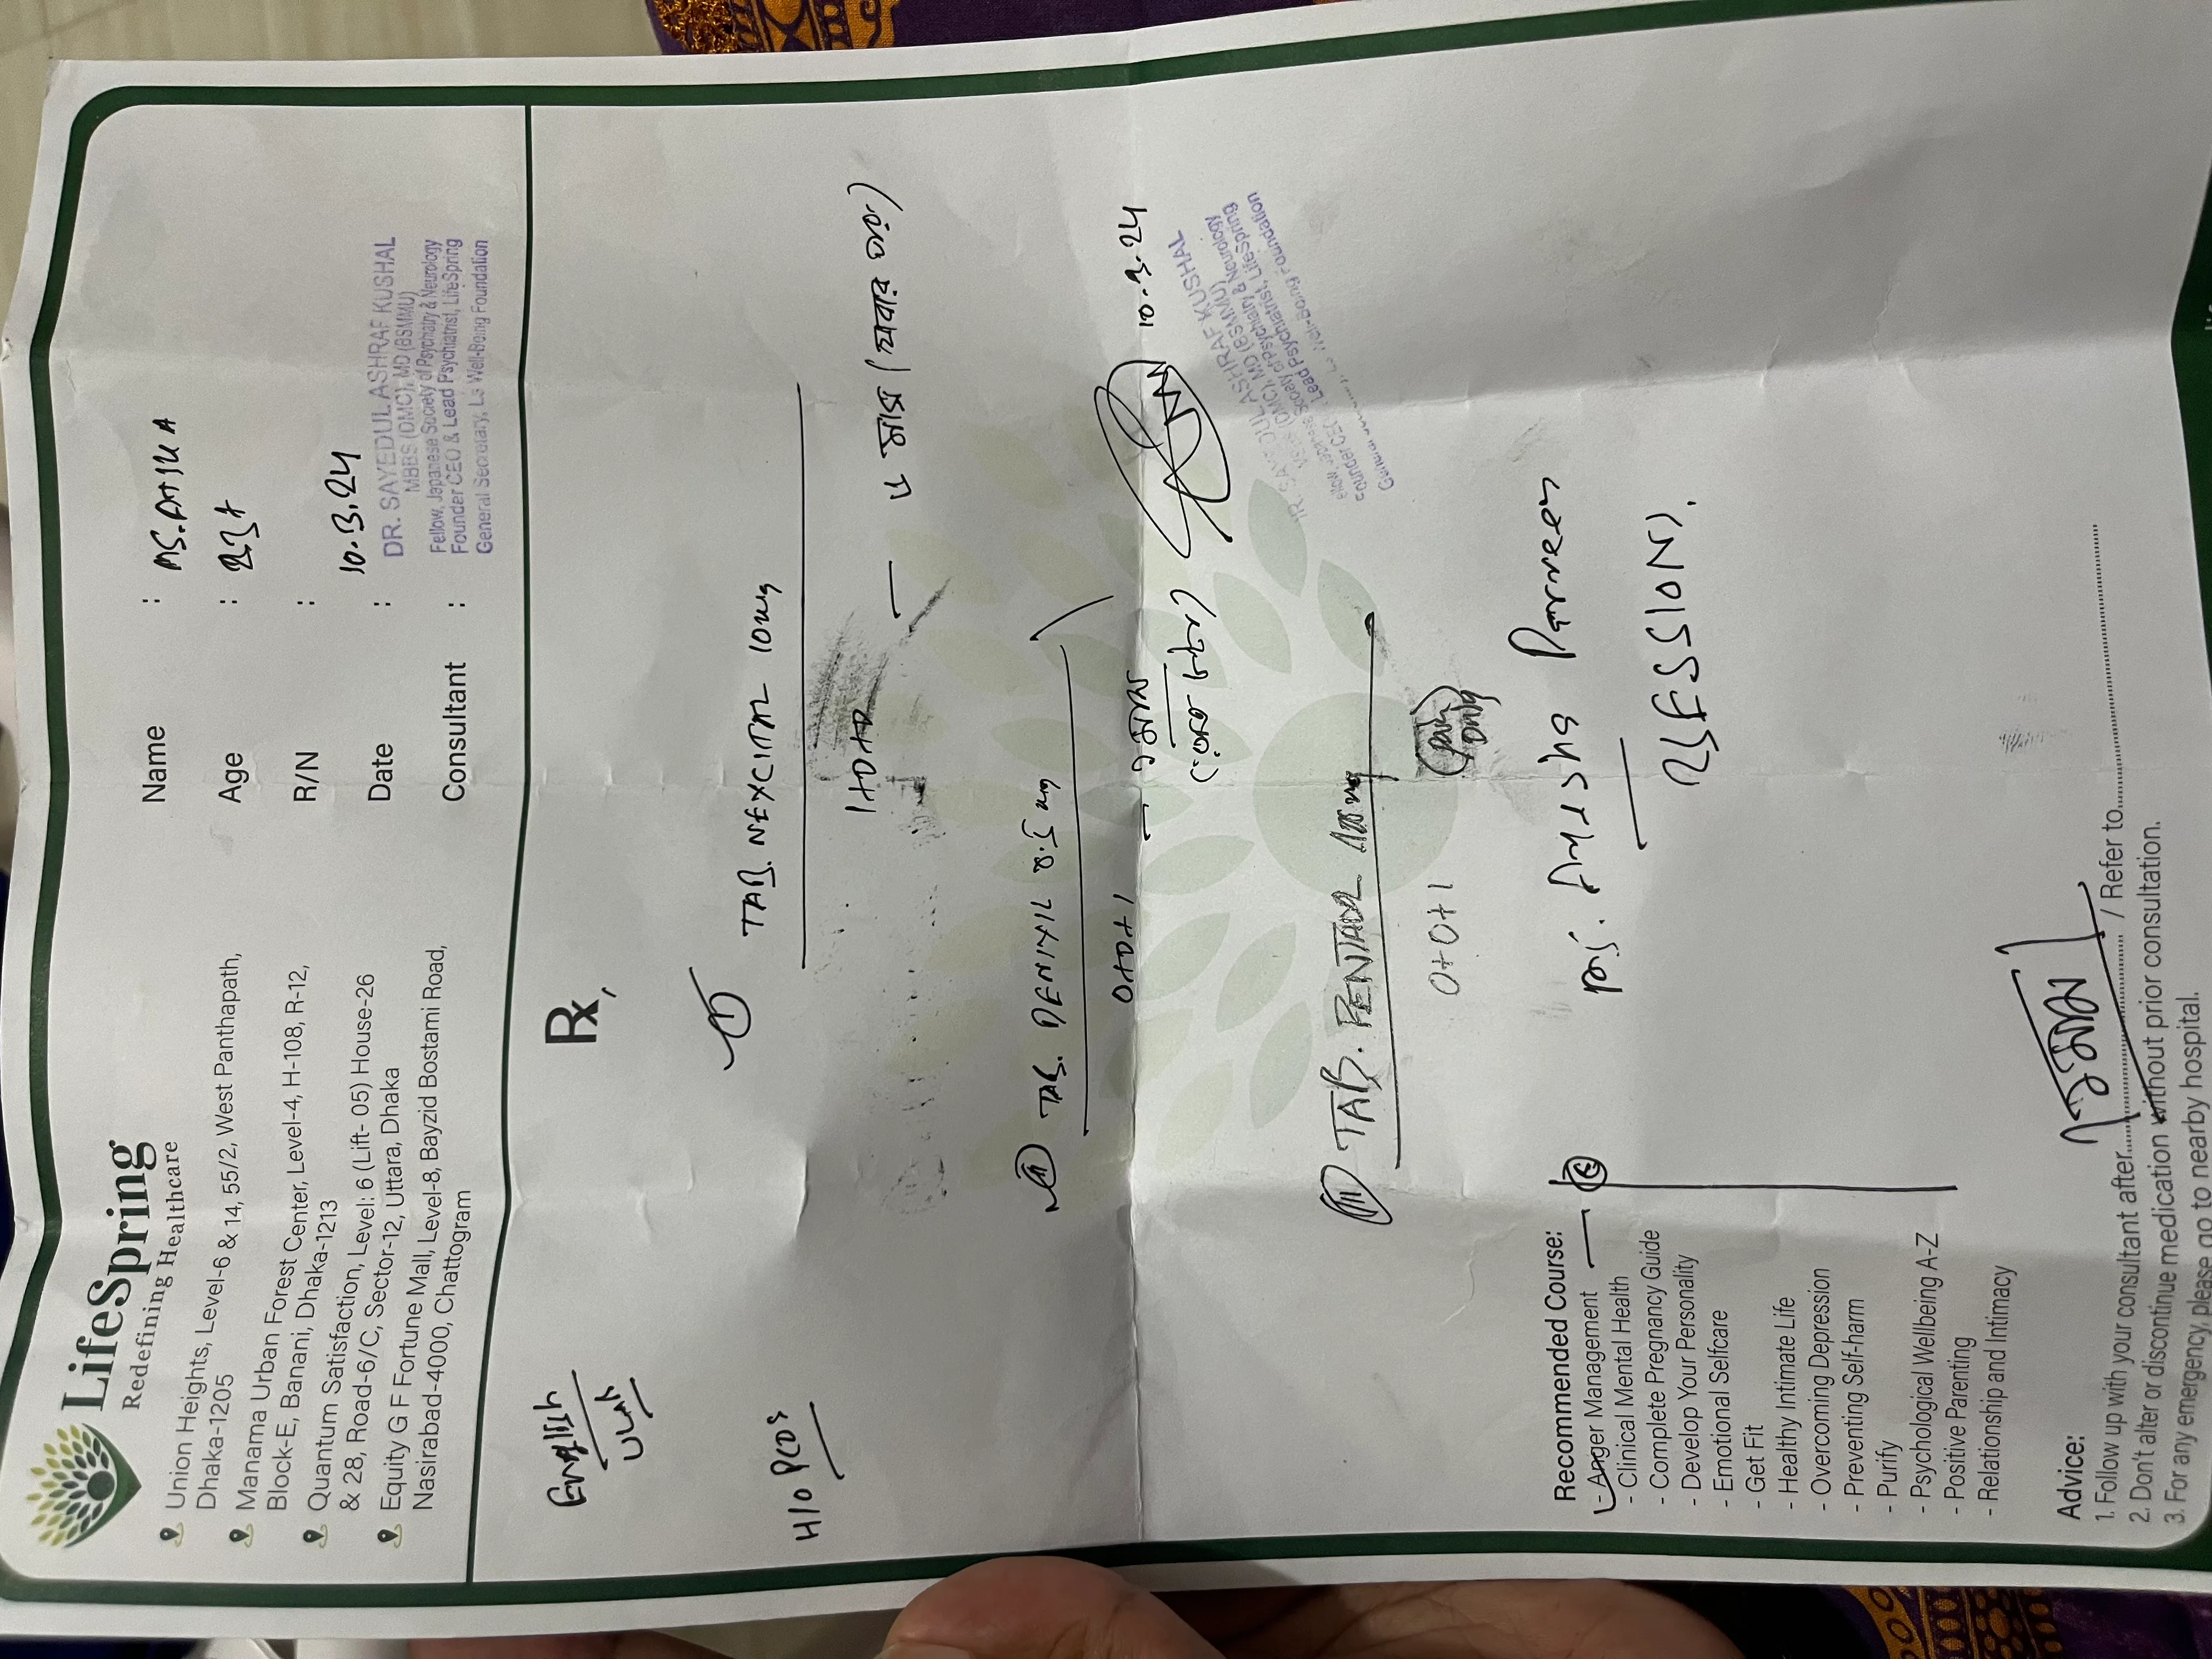 LifeSpring
Redefining Healthcare
Union Heights, Level-6 & 14, 55/2, West Panthapath,
Dhaka-1205
Manama Urban Forest Center, Level-4, H-108, R-12,
Block-E, Banani, Dhaka-1213
Quantum Satisfaction, Level: 6 (Lift- 05) House-26
& 28, Road-6/C, Sector-12, Uttara, Dhaka
Equity G F Fortune Mall, Level-8, Bayzid Bostami Road,
Nasirabad-4000, Chattogram
Name :
Age :
R/N :
Date : 10.3.24
Consultant :
DR. SAYEDUL ASHRAF KUSHAL
MBBS (DMC), MD (BSMMU)
Fellow, Japanese Society of Psychiatry & Neurology
Founder CEO & Lead Psychiatrist, LifeSpring
General Secretary, Ls Well-Being Foundation
English
H/O PCOS
Rx,
TAB. NEXCITAL 10mg
1+0+0
TAB. DENIXIL 0.5mg
0+0+1
10.3.24
DR. SAYEDUL ASHRAF KUSHAL
TAB.
0+0+1
Ms.
SESSION).
Recommended Course:
- Anger Management
- Clinical Mental Health
- Complete Pregnancy Guide
- Develop Your Personality
- Emotional Selfcare
- Get Fit
- Healthy Intimate Life
- Overcoming Depression
- Preventing Self-harm
- Purify
- Psychological Wellbeing A-Z
- Positive Parenting
- Relationship and Intimacy
Advice:
1. Follow up with your consultant after / Refer to
2. Don't alter or discontinue medication without prior consultation.
3. For any emergency, please go to nearby hospital.